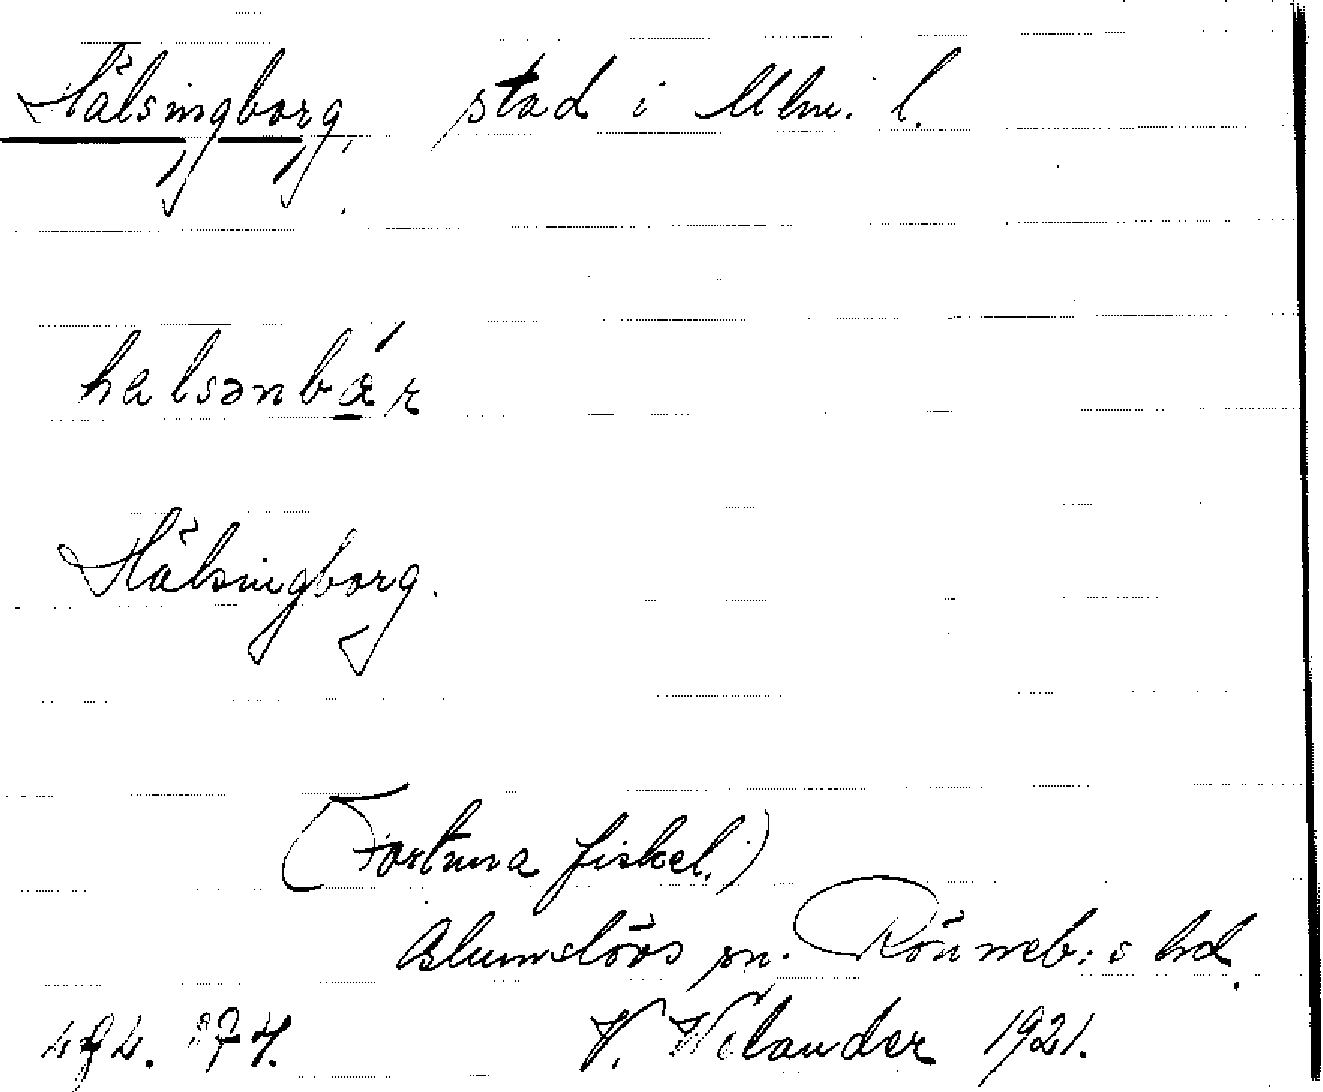 Hälsingborg, stad i Mlm. l.
helsənbǽr
Hälsingborg.
(Fortuna fiskel.)
Glumslövs sn. Rönneb:s hd.
V. Wilander 1921.